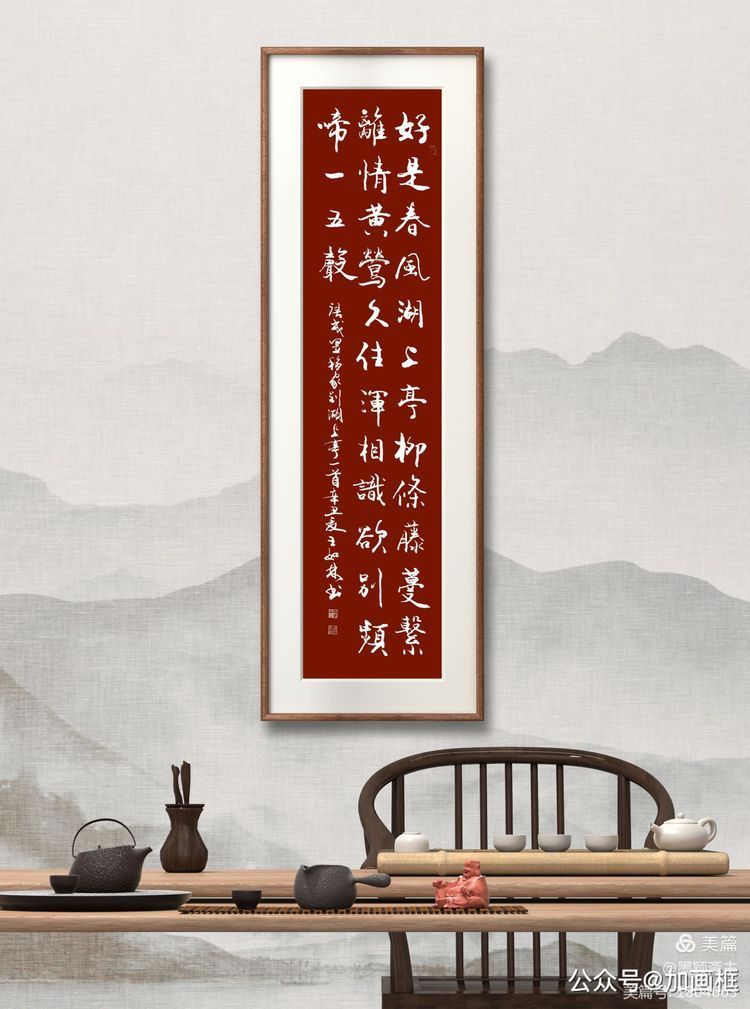 好是春風湖上亭柳條藤蔓繫
離情黃鶯久住渾相識欲別頻
啼一五聲
唐戎昱移家別湖上亭一首辛丑夏王如林书
美篇
公众号@加画框
美篇号